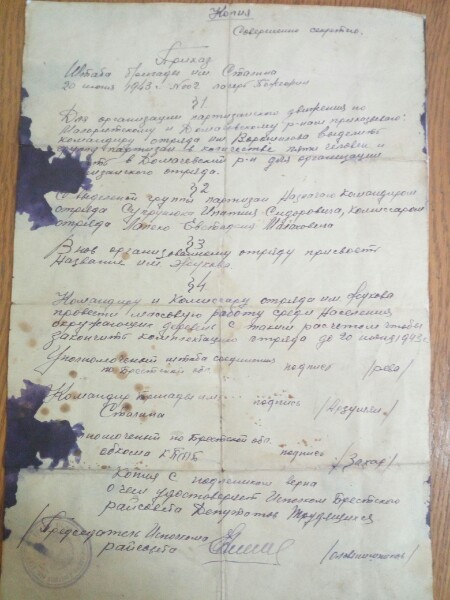 Копия
Совершенно секретно.
Приказ
Штаба бригады им. Сталина
20 июня 1943 г. №002 лагерь
§1
Для организации партизанского движения по
Малоритскому и Домачевскому р-нам приказываю:
Командиру отряда им. Ворошилова выделить
группу партизан в количестве пяти человек и
в Домачевский р-н для организации
отряда.
§2
выделенной группы партизан назначаю командиром
отряда Сидоровича, комиссаром
отряда
§3
Вновь организованному отряду присвоить
название им. Жукова.
§4
Командиру и Комиссару отряда им. Жукова
провести массовую работу среди населения
окружающих деревень с таким расчетом чтобы
закончить комплектацию отряда до 20 июня 1943 г.
Уполномоченный штаба соединения
по Брестской об. подпись
Командир бригады им. подпись
Сталина
по Брестской обл.
обкома подпись
Копия с подлинником верна
о чем удостоверяет Исполком Брестского
райсовета депутатов трудящихся
Председатель Исполкома
райсовета